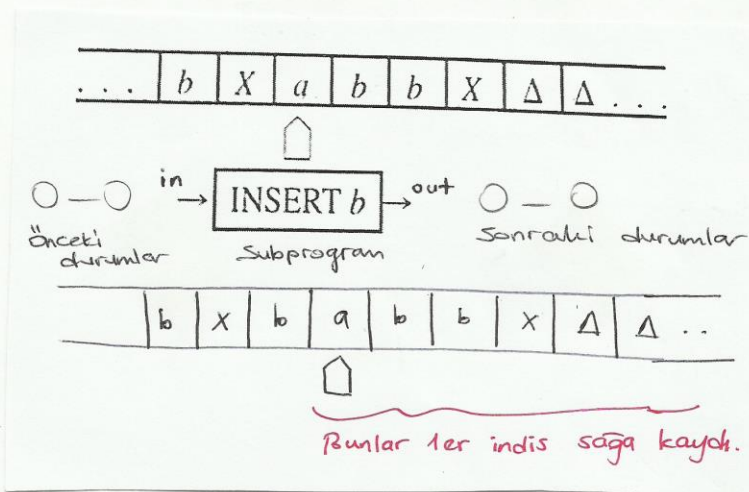 . . . b X a b b X Δ Δ . . .
in → INSERT b → out
Önceki durumlar
Subprogram
Sonraki durumlar
b X b a b b X Δ Δ ..
Bunlar 1er indis sağa kaydı.